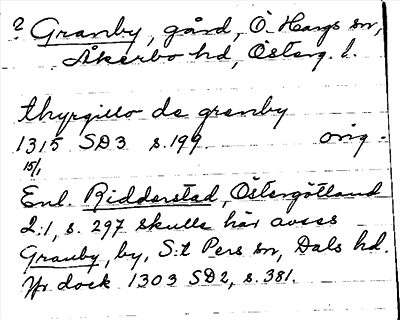 ? Granby, gård, Ö. Hargs sn,
Åkerbo hd, Österg. l.
thyrgillo de granby
1315 SD3 s. 199 orig.
15/1
Enl. Ridderstad, Östergötland
2:1, s. 297 skulle här avses
Granby, by, S:t Pers sn, Dals hd.
Jfr dock 1303 SD2, s. 381.